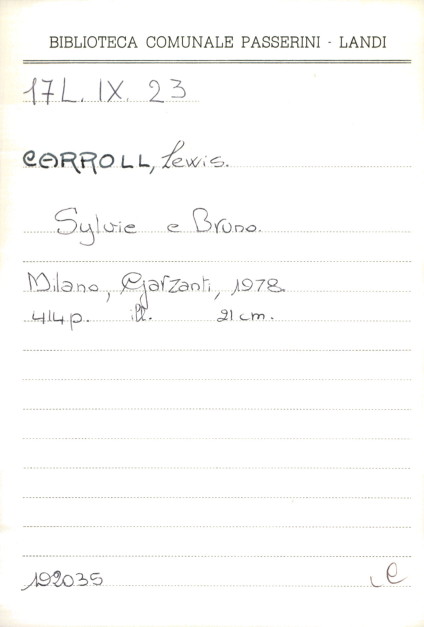 BIBLIOTECA COMUNALE PASSERINI - LANDI
17L. IX. 23
CARROLL, Lewis.
Sylvie e Bruno.
Milano, Garzanti, 1978.
414p. ill. 21 cm.
192035 C